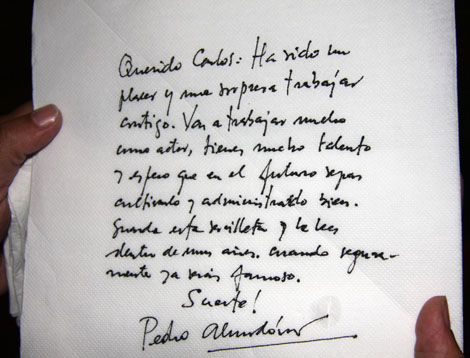 Querido Carlos: Ha sido un
placer y una sorpresa trabajar
contigo. Vas a trabajar mucho
como actor, tienes mucho talento
y espero que en el futuro sepas
cultivarlo y administrarlo bien.
Guarda esta servilleta y la lees
dentro de unos años, cuando segura-
mente ya serás famoso.
Suerte!
Pedro Almodóvar